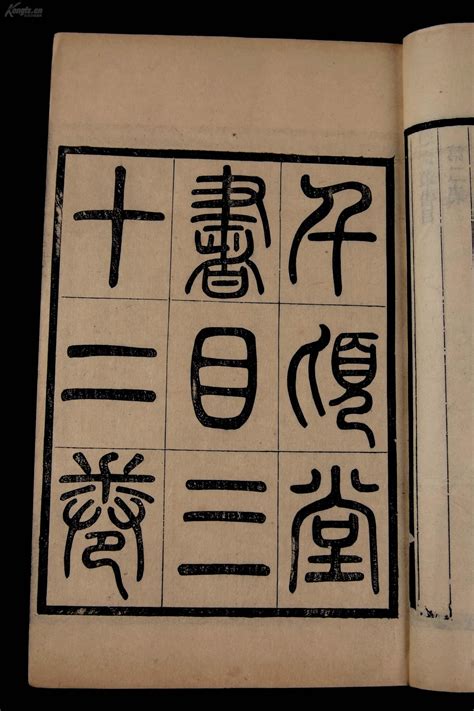 千頃堂
書目三
十二卷
Kongfz.cn